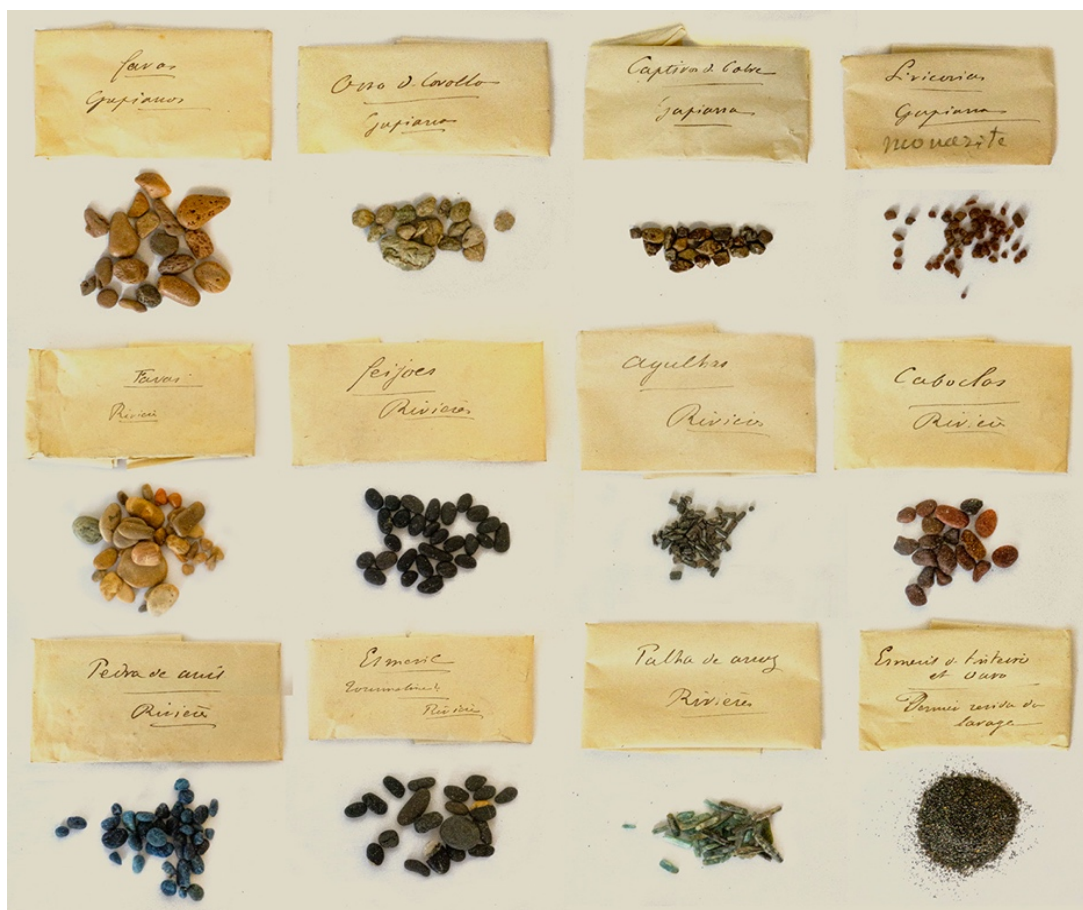 favas
Grapiaros
Ovro d. Cavallo
Grapiara
Captivos d. Cobre
Grapiara
Siricorias
Grapiara
monazite
Favas
Rivière
feijoes
Rivières
agulhas
Rivières
Caboclos
Rivière
Pedra de anis
Rivières
Esmeril
Rivières
Palha de arroz
Rivières
Esmeril d. tinteiro
et ouro
Dernier residu du
lavage